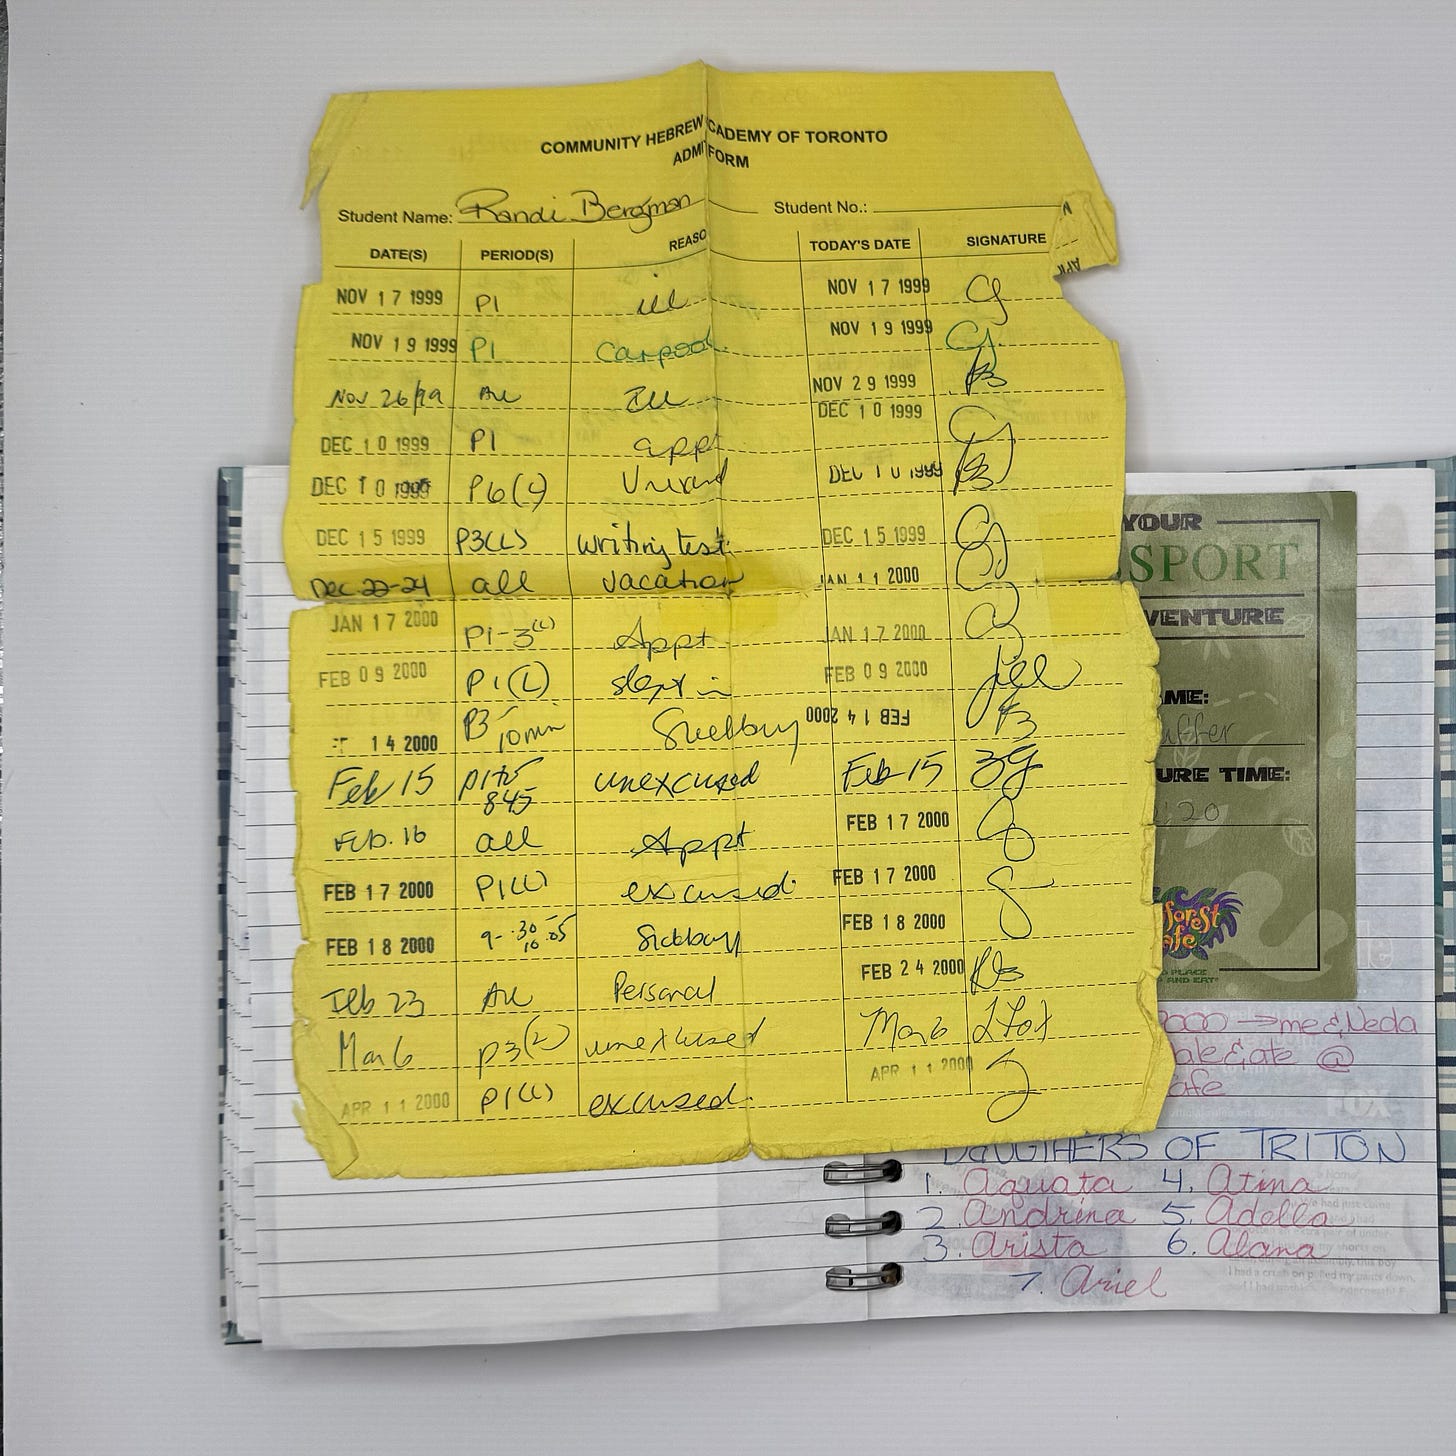 COMMUNITY HEBREW CADEMY OF TORONTO
ADMI FORM
Student Name: Randi Bergman Student No.:
DATE(S) PERIOD(S) REASO TODAY'S DATE SIGNATURE
NOV 17 1999 P1 ill NOV 17 1999
NOV 19 1999 P1 Carpool NOV 19 1999
Nov 26/99 All Ill NOV 29 1999
DEC 10 1999 P1 appt DEC 10 1999
DEC 10 1999 P6(L) DEC 10 1999
DEC 15 1999 P3(L) writing test. DEC 15 1999
Dec. 22-24 all vacation JAN 11 2000
JAN 17 2000 P1-3(L) Appt JAN 17 2000
FEB 09 2000 P1(L) slept in FEB 09 2000
14 2000 P3 10min FEB 14 2000
Feb 15 P1 845 unexcused Feb 15
Feb. 16 all Appt FEB 17 2000
FEB 17 2000 P1(L) excused. FEB 17 2000
FEB 18 2000 9-:30 10:05 FEB 18 2000
Feb 23 All Personal FEB 24 2000
Mar 6 P3(L) unexcused Mar 6
APR 11 2000 P1(L) excused. APR 11 2000
YOUR
SPORT
VENTURE
AME:
uffer
URE TIME:
:20
forest
afe
PLACE
AND EAT
2000 → me & Neda
ate @
afe
FOX
DAUGHTERS OF TRITON
1. Aquata 4. Atina
2. Andrina 5. Adella
3. Arista 6. Alana
7. Ariel